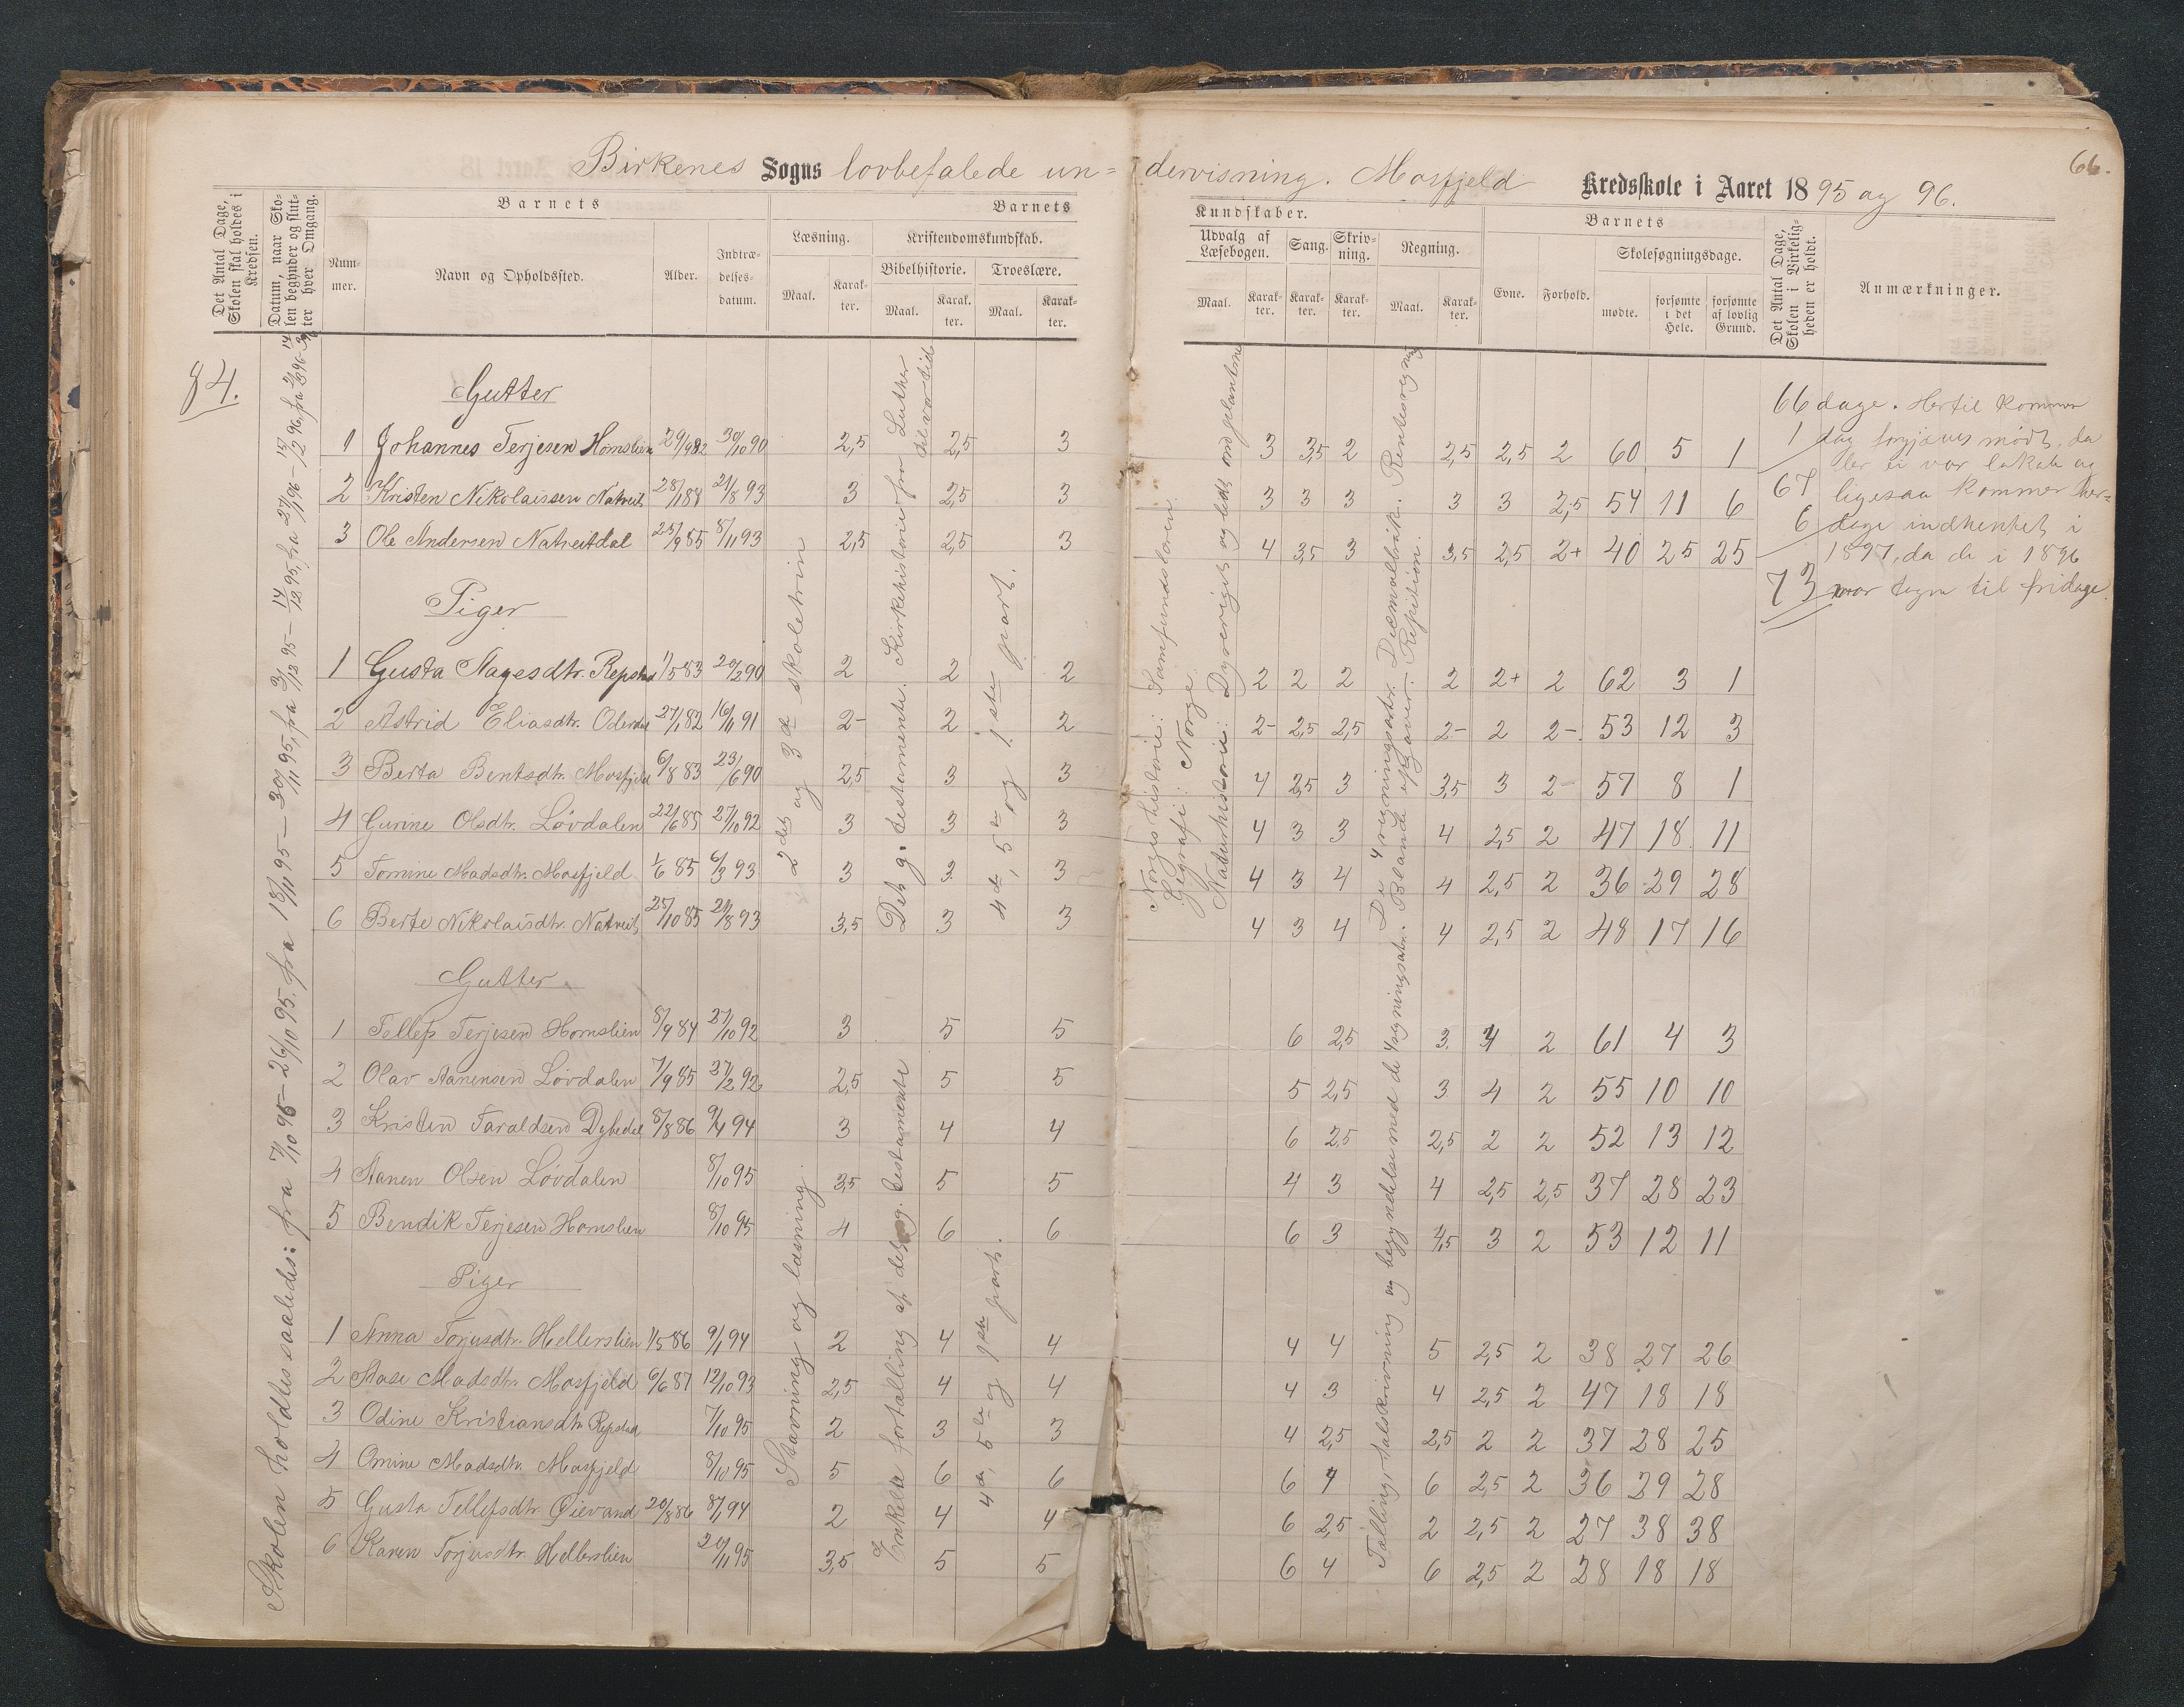 66.
Birkenes Sogns lovbefalede un= dervisning. Mosfjeld Kredsskole i Aaret 1895 og 96.
Det Antal Dage, Skolen skal holdes i Kredsen.
Datum, naar Skolen begynder og slutter hver Omgang.
Barnets
Nummer.
Navn og Opholdssted.
Alder.
Indtrædelses-datum.
Barnets
Læsning.
Maal.
Karakter.
Kristendomskundskab.
Bibelhistorie.
Maal.
Karakter.
Troeslære.
Maal.
Karakter.
Kundskaber.
Udvalg af Læsebogen.
Maal.
Karakter.
Sang.
Karakter.
Skrivning.
Karakter.
Regning.
Maal.
Karakter.
Barnets
Evne.
Forhold.
Skolesøgningsdage.
mødte.
forsømte i det Hele.
forsømte af lovlig Grund.
Det Antal Dage, Skolen i Virkeligheden er holdt.
Anmærkninger.
84.
Skolen holdtes saaledes: fra 7/10 95 – 26/10 95. fra 18/11 95 – 30/11 95, fra 2/12 95 – 14/12 95, fra 27/1 96 – 15/2 96, fra
2det og 3die skoletrin
Det g. testamente. Kirkehistorie fra Luther til vor tid
4de, 5te og 1ste part.
Norges historie: Samfundslæren.
Geografi: Norge.
Naturhistorie: Dyreriget og lidt om plantene
De 4 regningsarter. Decimalbrøk. Rentesregning
Blande opgaver. Repition.
Gutter
1 Johannes Terjesen Hornslien 29/9 82 30/10 90 2,5 2,5 3 3 3,5 2 2,5 2,5 2 60 5 1
2 Kristen Nikolaissen Natveit 28/1 84 21/8 93 3 2,5 3 3 3 3 3 3 2,5 54 11 6
3 Ole Andersen Natveitdal 25/9 85 8/11 93 2,5 2,5 3 4 3,5 3 3,5 2,5 2+ 40 25 25
Piger
1 Gusta Aagesdtr. Repstad 1/5 83 20/2 90 2 2 2 2 2 2 2 2+ 2 62 3 1
2 Astrid Eliasdtr. 27/1 82 16/11 91 2- 2 2 2- 2,5 2,5 2- 2 2- 53 12 3
3 Berta Bentsdtr. Mosfjeld 6/8 83 23/6 90 2,5 3 3 4 2,5 3 3,5 3 2- 57 8 1
4 Gurine Olsdtr. Løvdalen 22/6 85 27/10 92 3 3 3 4 3 3 4 2,5 2 47 18 11
5 Tomine Madsdtr. Mosfjeld 1/6 85 6/3 93 3 3 3 4 3 4 4 2,5 2 36 29 28
6 Berte Nikolaisdtr. Natveit 25/10 85 21/8 93 3,5 3 3 4 3 4 4 2,5 2 48 17 16
Stavning og læsning.
Enkelte fortælling af det g. testamente
4de, 5te og 1ste part.
Tælling, talskrivning og begyndelse med de 4 regningsarter.
Gutter
1 Tellef Terjesen Hornslien 8/9 84 27/10 92 3 5 5 6 2,5 3 4 2 61 4 3
2 Olav Aanensen Løvdalen 7/9 85 27/2 92 2,5 5 5 5 2,5 3 4 2 55 10 10
3 Kristen Taraldsen Dybedal 8/8 86 9/1 94 3 4 4 6 2,5 2,5 2 2 52 13 12
4 Aanen Olsen Løvdalen 8/10 95 3,5 5 5 4 3 4 2,5 2,5 37 28 23
5 Bendik Terjesen Hornslien 8/10 95 4 6 6 6 3 4,5 3 2 53 12 11
Piger
1 Anna Torjusdtr. Hellerslien 1/5 86 9/1 94 2 4 4 4 4 5 2,5 2 38 27 26
2 Aase Madsdtr. Mosfjeld 6/6 87 12/10 93 2,5 4 4 4 3 4 2,5 2 47 18 18
3 Odine Kristiansdtr. Repstad 7/10 95 2 3 3 4 2,5 2,5 2 2 37 28 25
4 Omine Madsdtr. Mosfjeld 8/10 95 5 6 6 6 4 6 2,5 2 36 29 28
5 Gusta Tellefsdtr. Øievand 20/8 86 8/1 94 2 4 4 6 2,5 2 2,5 2 27 38 38
6 Karen Torjusdtr. Hellerslien 20/11 95 3,5 5 5 6 4 6 2,5 2 28 18 18
66 dage. Hertil kommer
1 dag forgjæves mødt, da
der ei var lokale og
67 ligesaa kommer her=
6 dage indhentet i
1897, da de i 1896
73 var tagne til fridage.